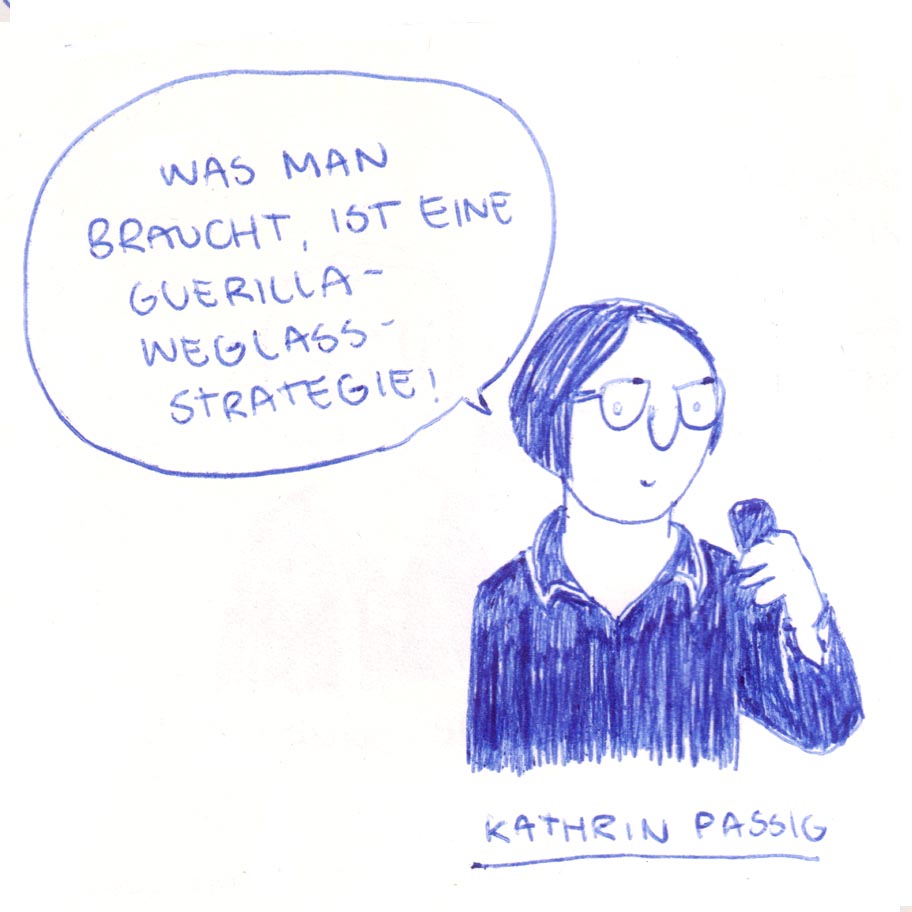 WAS MAN
BRAUCHT, IST EINE
GUERILLA-
WEGLASS-
STRATEGIE!
KATHRIN PASSIG